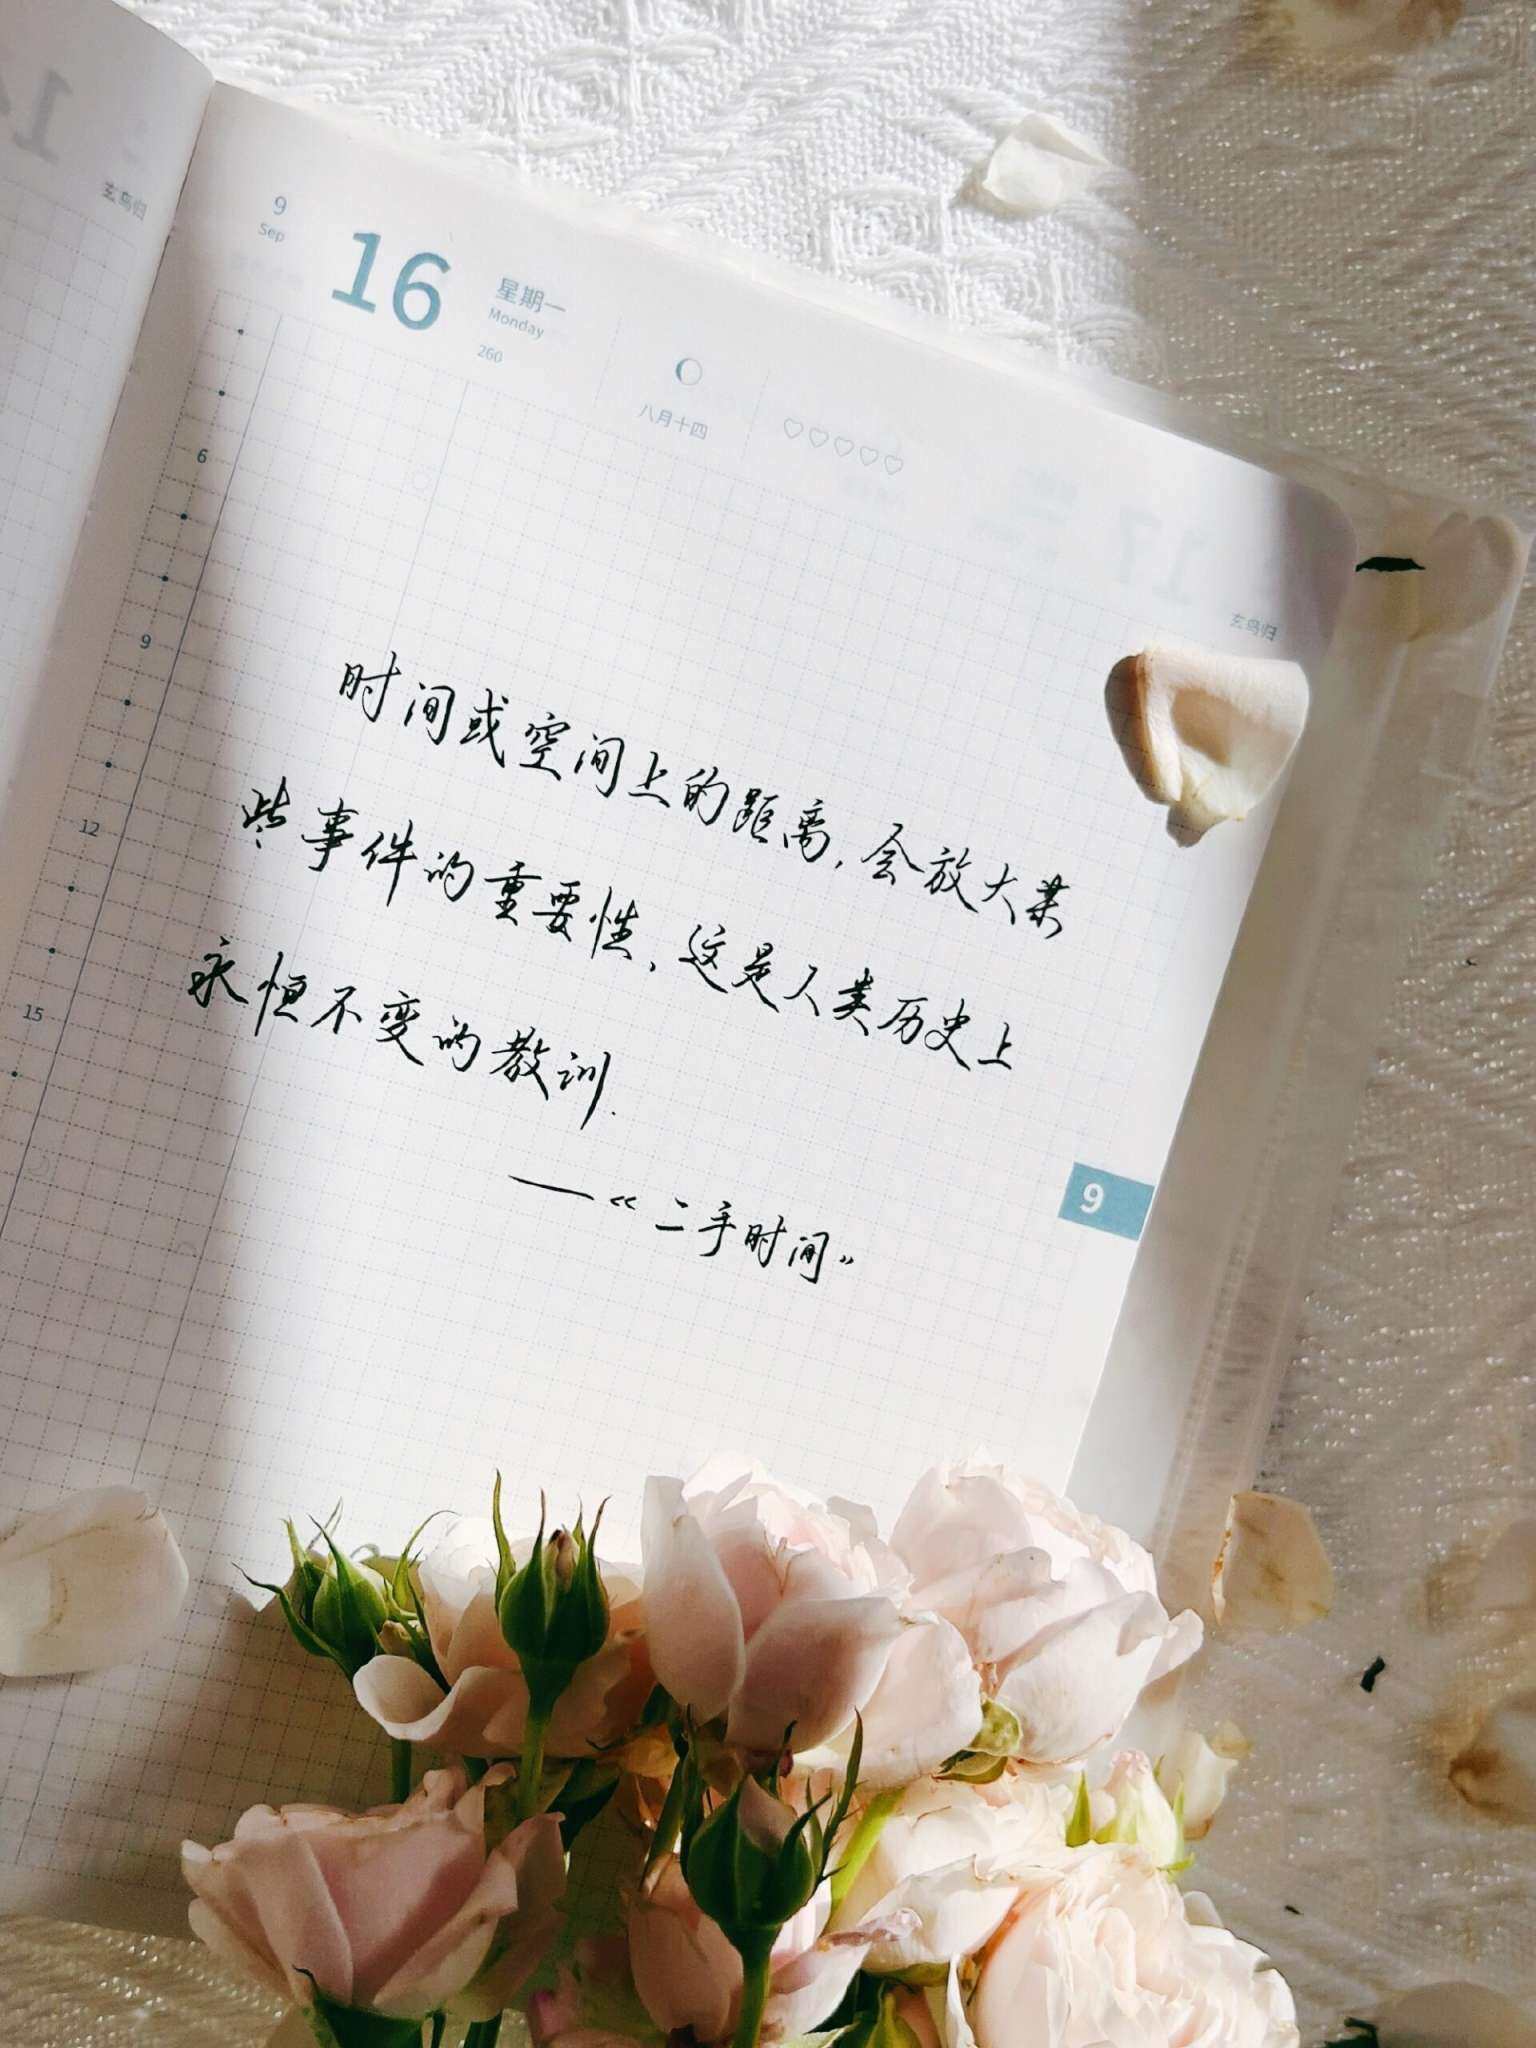 玄鸟归
9
Sep
16
星期一
Monday
260
八月十四
玄鸟归
6
9
12
15
时间或空间上的距离,会放大某
些事件的重要性,这是人类历史上
永恒不变的教训.
——《二手时间》
9